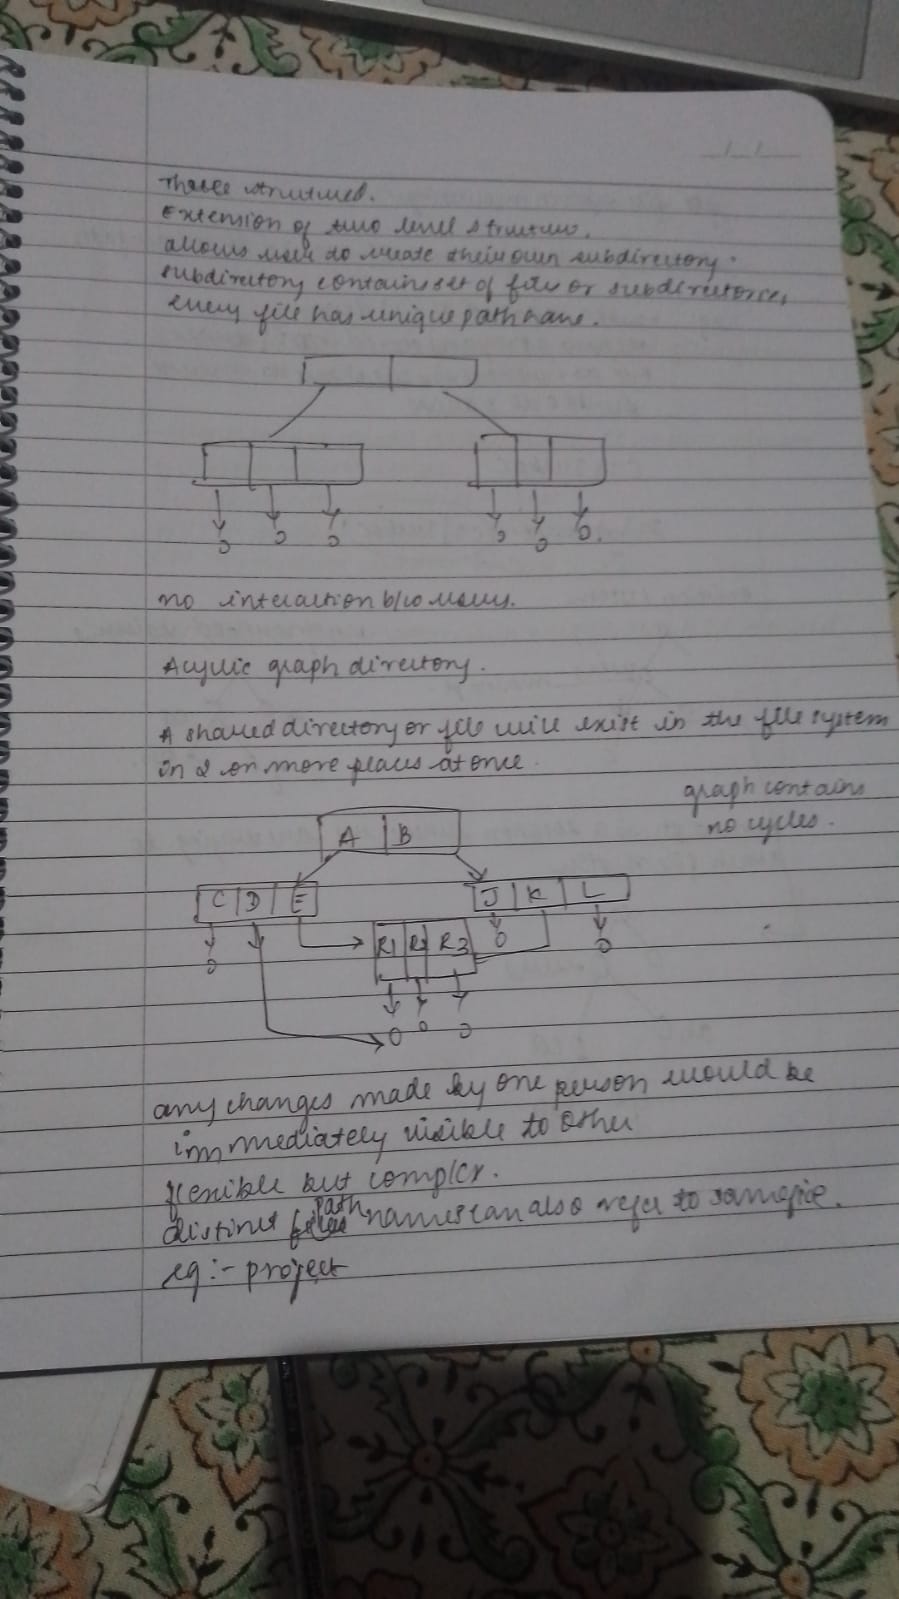 structured.
Extension of two level structure.
allows user to create their own subdirectory.
subdirectory contains set of files or subdirectories,
every file has unique path name.
no interaction b/w users.
Acyclic graph directory.
A shared directory or file will exist in the file system
in 2 or more places at once.
graph contains
no cycles.
A B
C D E
J K L
R1 R2 R3
any changes made by one person would be
immmediately visible to other
flexible but complex.
path
distinct names can also refer to same file.
eg:- project